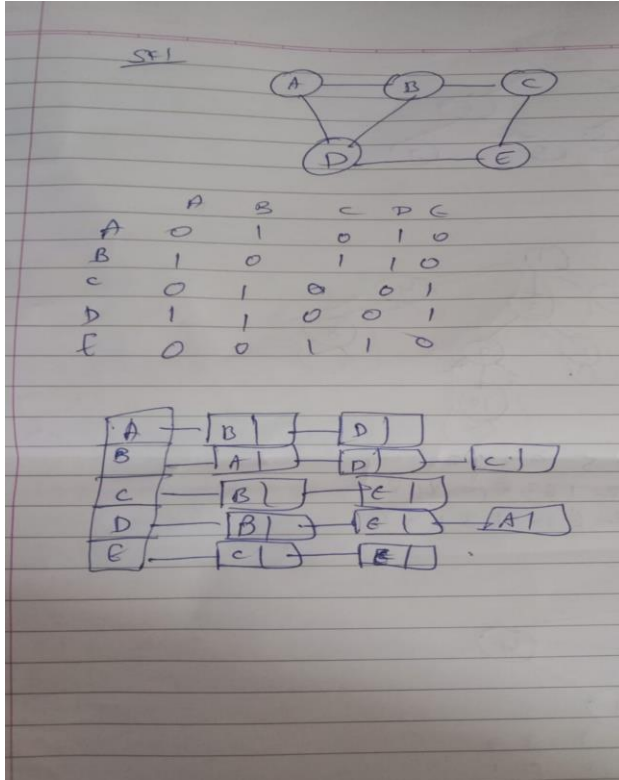 A B C
D E
A B C D E
A 0 1 0 1 0
B 1 0 1 1 0
C 0 1 0 0 1
D 1 1 0 0 1
E 0 0 1 1 0
A B D
B A D C
C B E
D B E A
E C